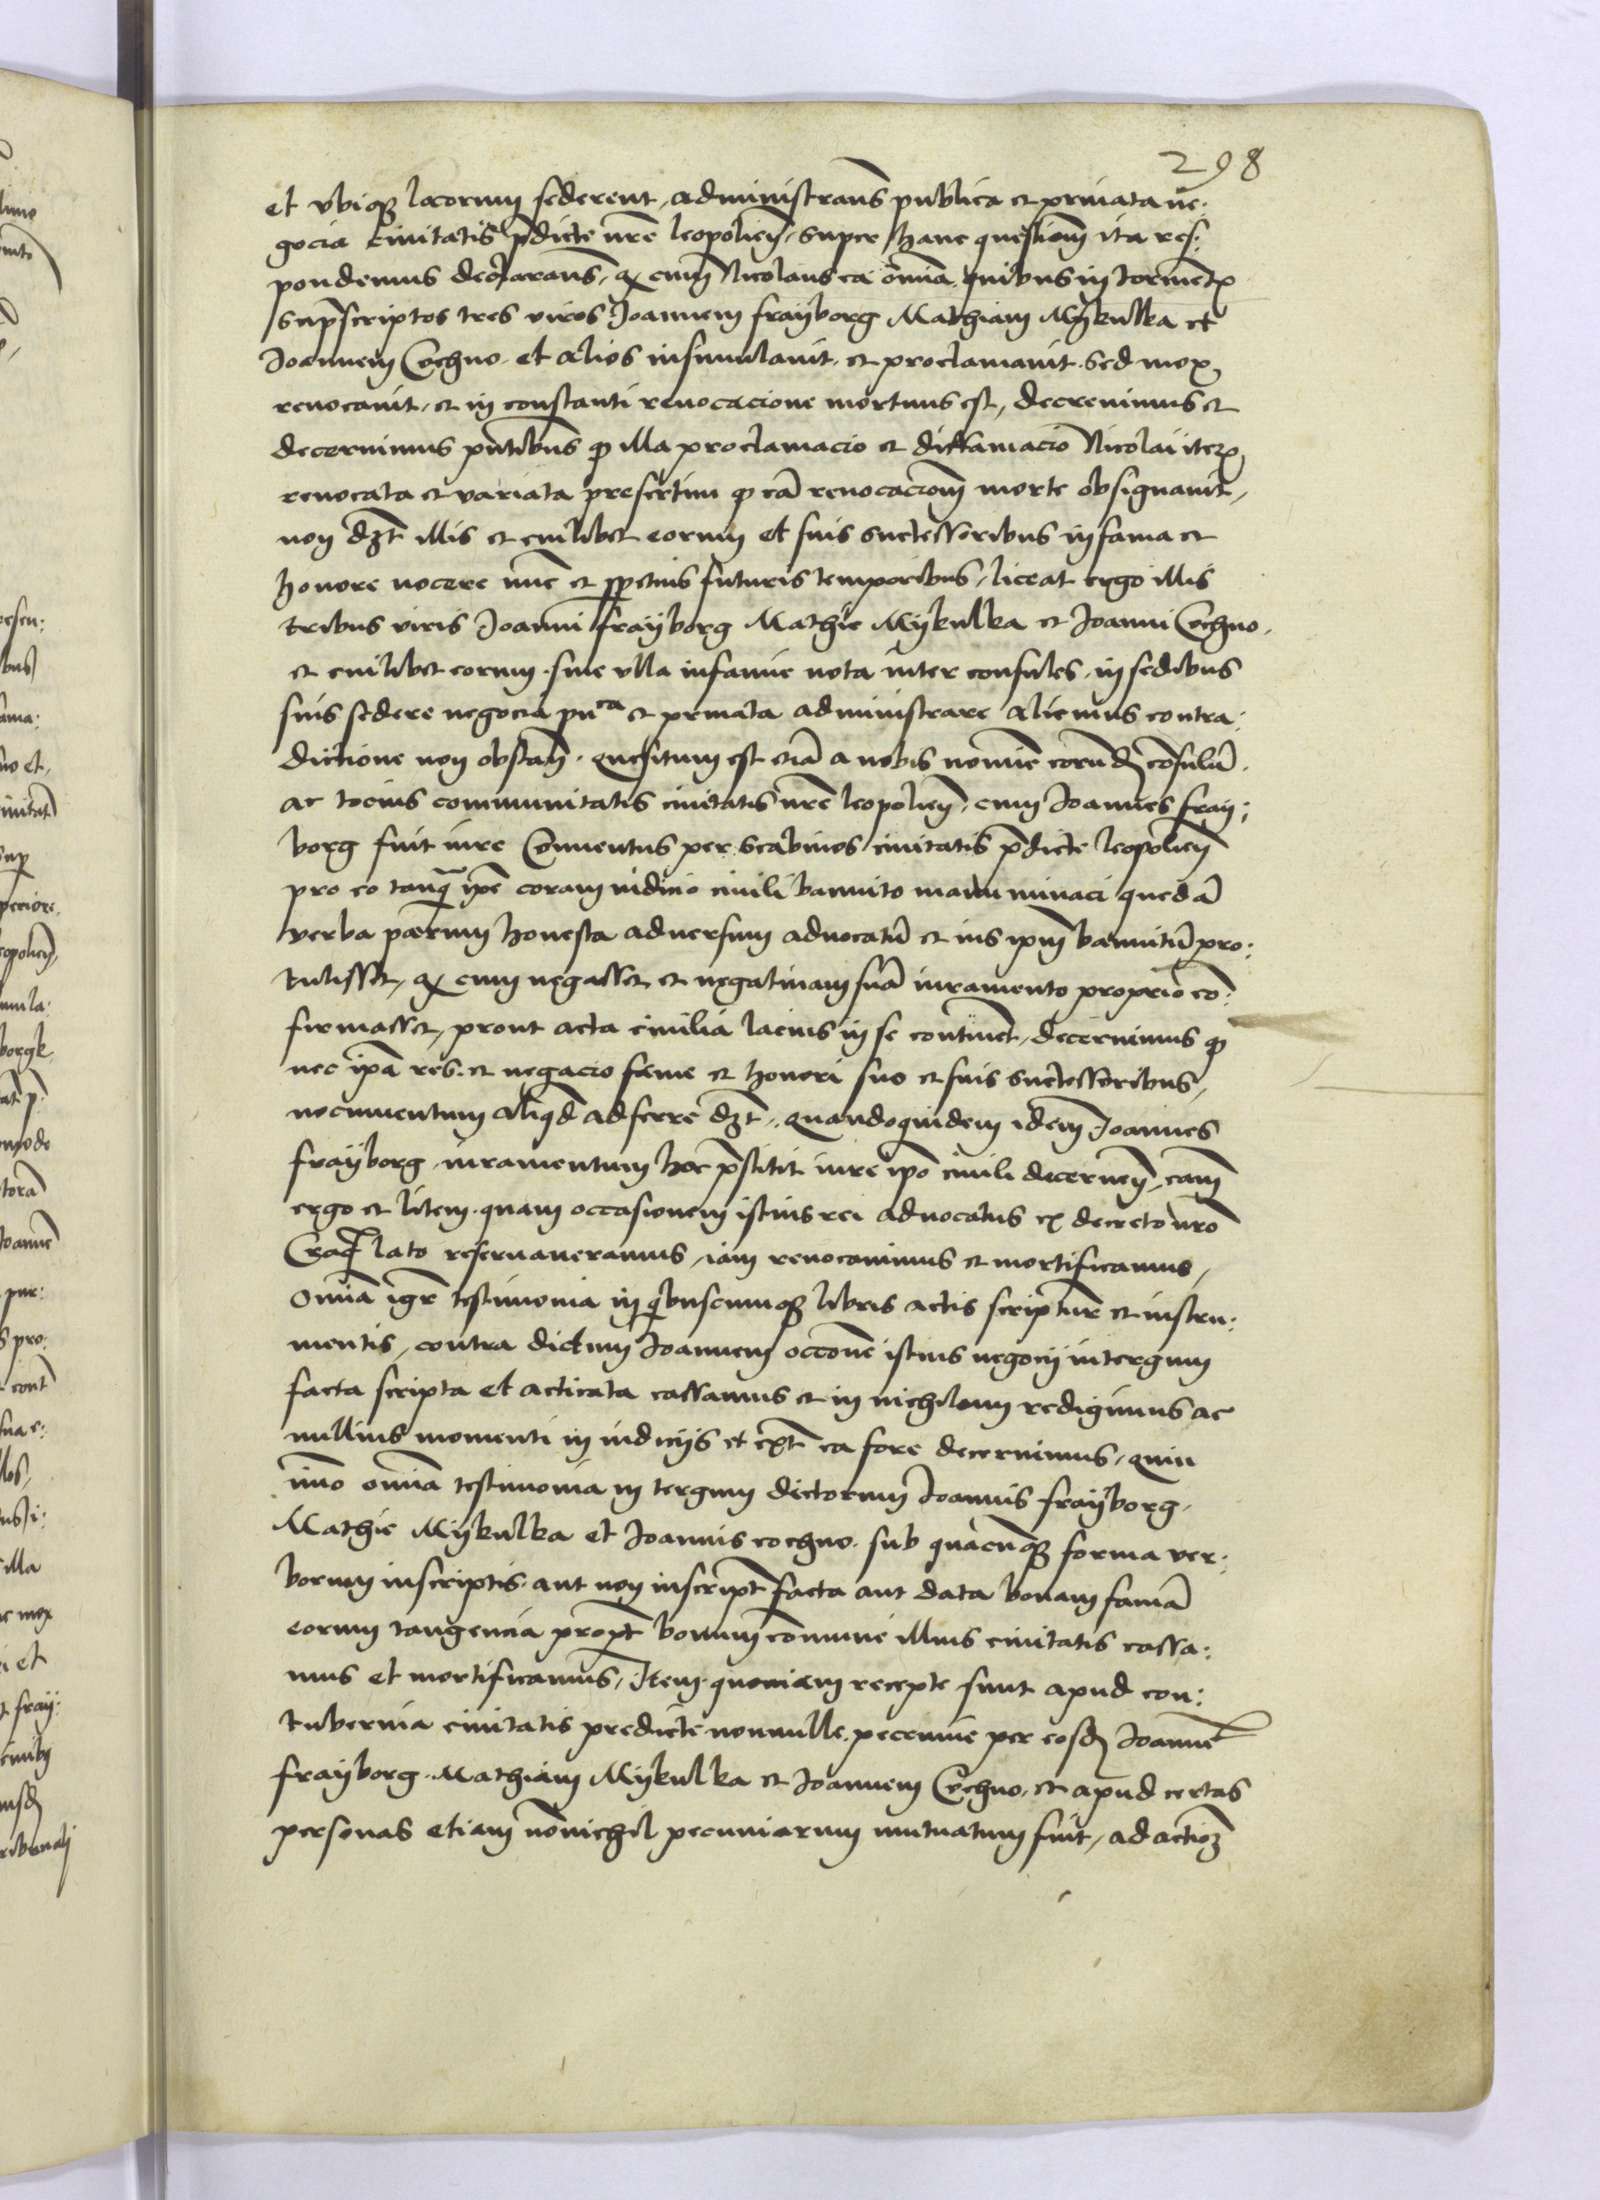 298
et vbiqȝ locorum sederent, administrans publica et priuata ne:
gocia ciuitatis pdicte nre leopolien̄, super hanc questionem ita res:
pondemus declarans, ꝙ cum Nicolaus ea omnia quibus in torment
supscriptos tres viros Joannem frayborg Mathiam Mykulka et
Joannem Czechno et alios insimulauit et proclamauit sed mox
reuocauit, et in constanti reuocacione mortuus est, decreuimus et
decernimus pntibus ꝙ illa proclamacio et diffamacio Nicolai iterum
reuocata et variata presertim ꝙ ea reuocacionem morte obsignauit,
non dȝt illis et cuilibet eorum et suis successoribus in fama et
honore nocere nunc et ppetuis futuris temporibus, liceat ergo illis
tribus viris Joanni frayborg Mathie Mykulka et Joanni Czechno
et cuilibet eorum sine vlla infamie nota inter consules in sedibus
suis sedere negocia puca et priuata administrare alicuius contra:
dictione non obstan̄. Quesitum est etiā a nobis nomine eorundem consulū
ac tocius communitatis ciuitatis nre leopolien̄, cum Joannes fray:
borg fuit iure conuentus per scabinos ciuitatis pdicte leopolien̄
pro eo tanq̄ ipse coram iudicio ciuili bannito manu minaci quedā
verba parum honesta aduersum aduocatū et ius ipm bannitū pro:
tulisset, ꝙ cum negasset et negatiuam suā iuramento proprio co:
firmasset, prout acta ciuilia lacius in se continet, decernimus ꝙ
nec ipa res et negacio fame et honori suo et suis successoribus,
nocumentum aliqd adferre dȝt, quandoquidem idem Joannes
frayborg iuramentum hoc pstitit iure ipo ciuili decernen̄, cam
ergo et litem quam occasionem istius rei aduocatus ex decreto nro
Crac lato reseruaueramus, iam reuocauimus et mortificamus,
omnia igr testimonia in qibuscumqȝ libris actis scripture et instru:
mentis, contra dictum Joannem occone istius negocij intergum
facta scripta et acticata cassamus et in nichilum redigimus ac
nullius momenti in iudicijs et ext ea fore decernimus, quin
imo omnia testimonia in tergum dictorum Joannis frayborg
Mathie Mykulka et Joannis cochno sub quacunqȝ forma ver:
borum inscriptis aut non inscript facta aut data bonam famā
eorum tangencia propt bonum comune illius ciuitatis cassa:
mus et mortificamus, Item quoniam recepte sunt apud con:
tubernia ciuitatis predicte nonnulle pecunie per eosdem Joanne
frayborg Mathiam Mykulka et Joannem Czechno, et apud certas
personas etiam nonichil pecuniarum mutuatum fuit, ad actioȝ